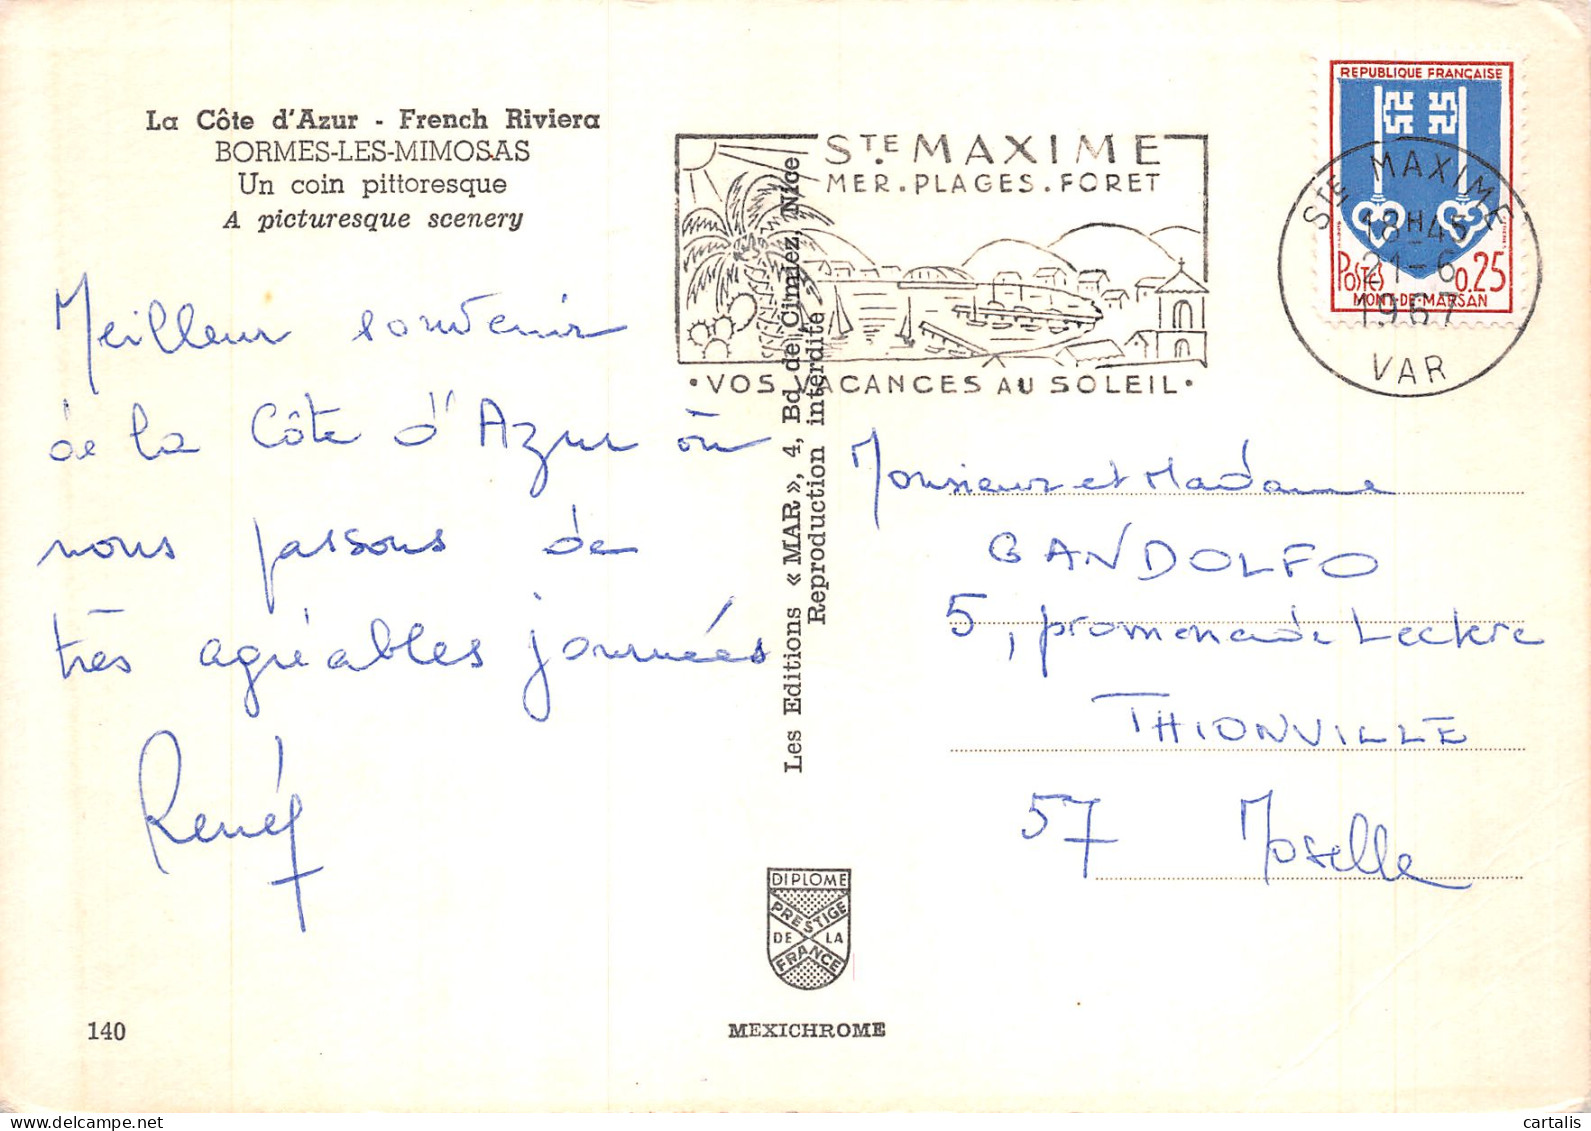 La Côte d'Azur - French Riviera
BORMES-LES-MIMOSAS
Un coin pittoresque
A picturesque scenery
Meilleur souvenir
de la Côte d'Azur où
nous passons de
très agréables journées
René
140
STE MAXIME
MER.PLAGES.FORET
•VOS VACANCES AU SOLEIL•
Les Editions «MAR», 4, Bd de Cimiez, Nice
Reproduction interdite
DIPLOME
PRESTIGE
DE LA
FRANCE
MEXICHROME
REPUBLIQUE FRANÇAISE
POSTES 0,25
MONT-DE-MARSAN
STE MAXIME
18H45
21-6
1967
VAR
Monsieur et Madame
GANDOLFO
5, promenade Leclerc
THIONVILLE
57 Moselle
cartalis